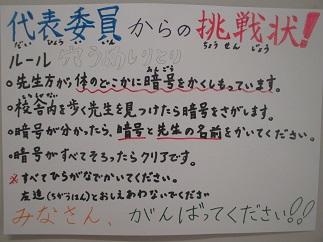 代表委員からの挑戦状!
だい ひょう い いん ちょう せん じょう
ルール
あんごう
○先生方が体のどこかに暗号をかくしもっています。
○校舎内を歩く先生を見つけたら暗号をさがします。
○暗号が分かったら、暗号と先生の名前をかいてください。
○暗号がすべてそろったらクリアです。
※すべてひらがなでかいてください。
友達(ちがうはん)とおしえあわないでください
みなさん、がんばってください!!!